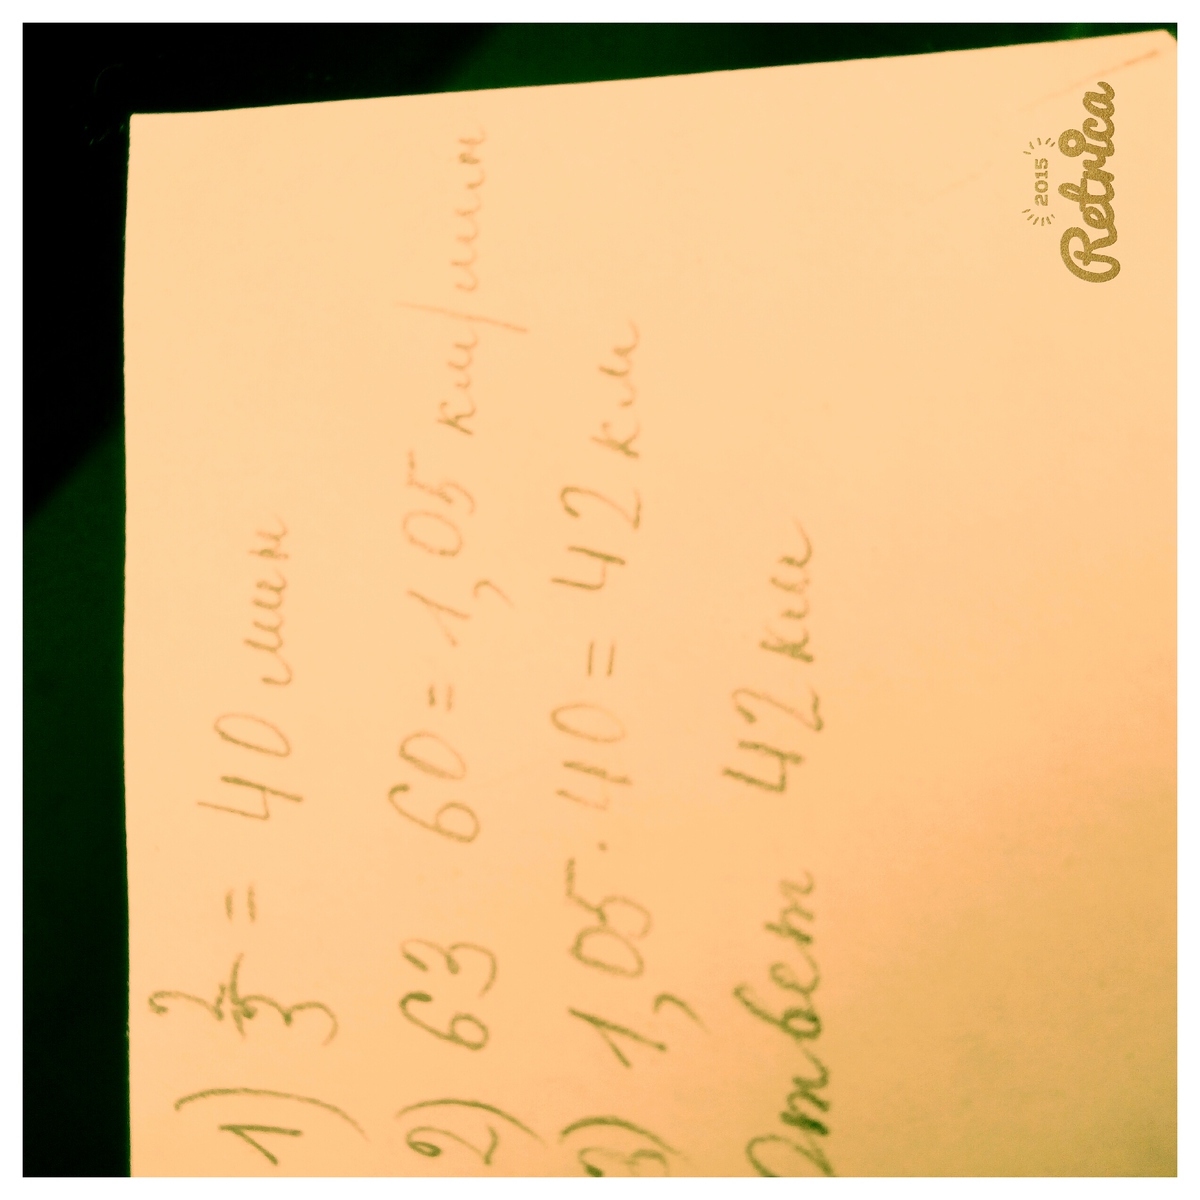 1) 2/3 = 40 мин
2) 63 60 = 1,05 км/мин
3) 1,05 · 40 = 42 км
Ответ 42 км
2015
Retrica